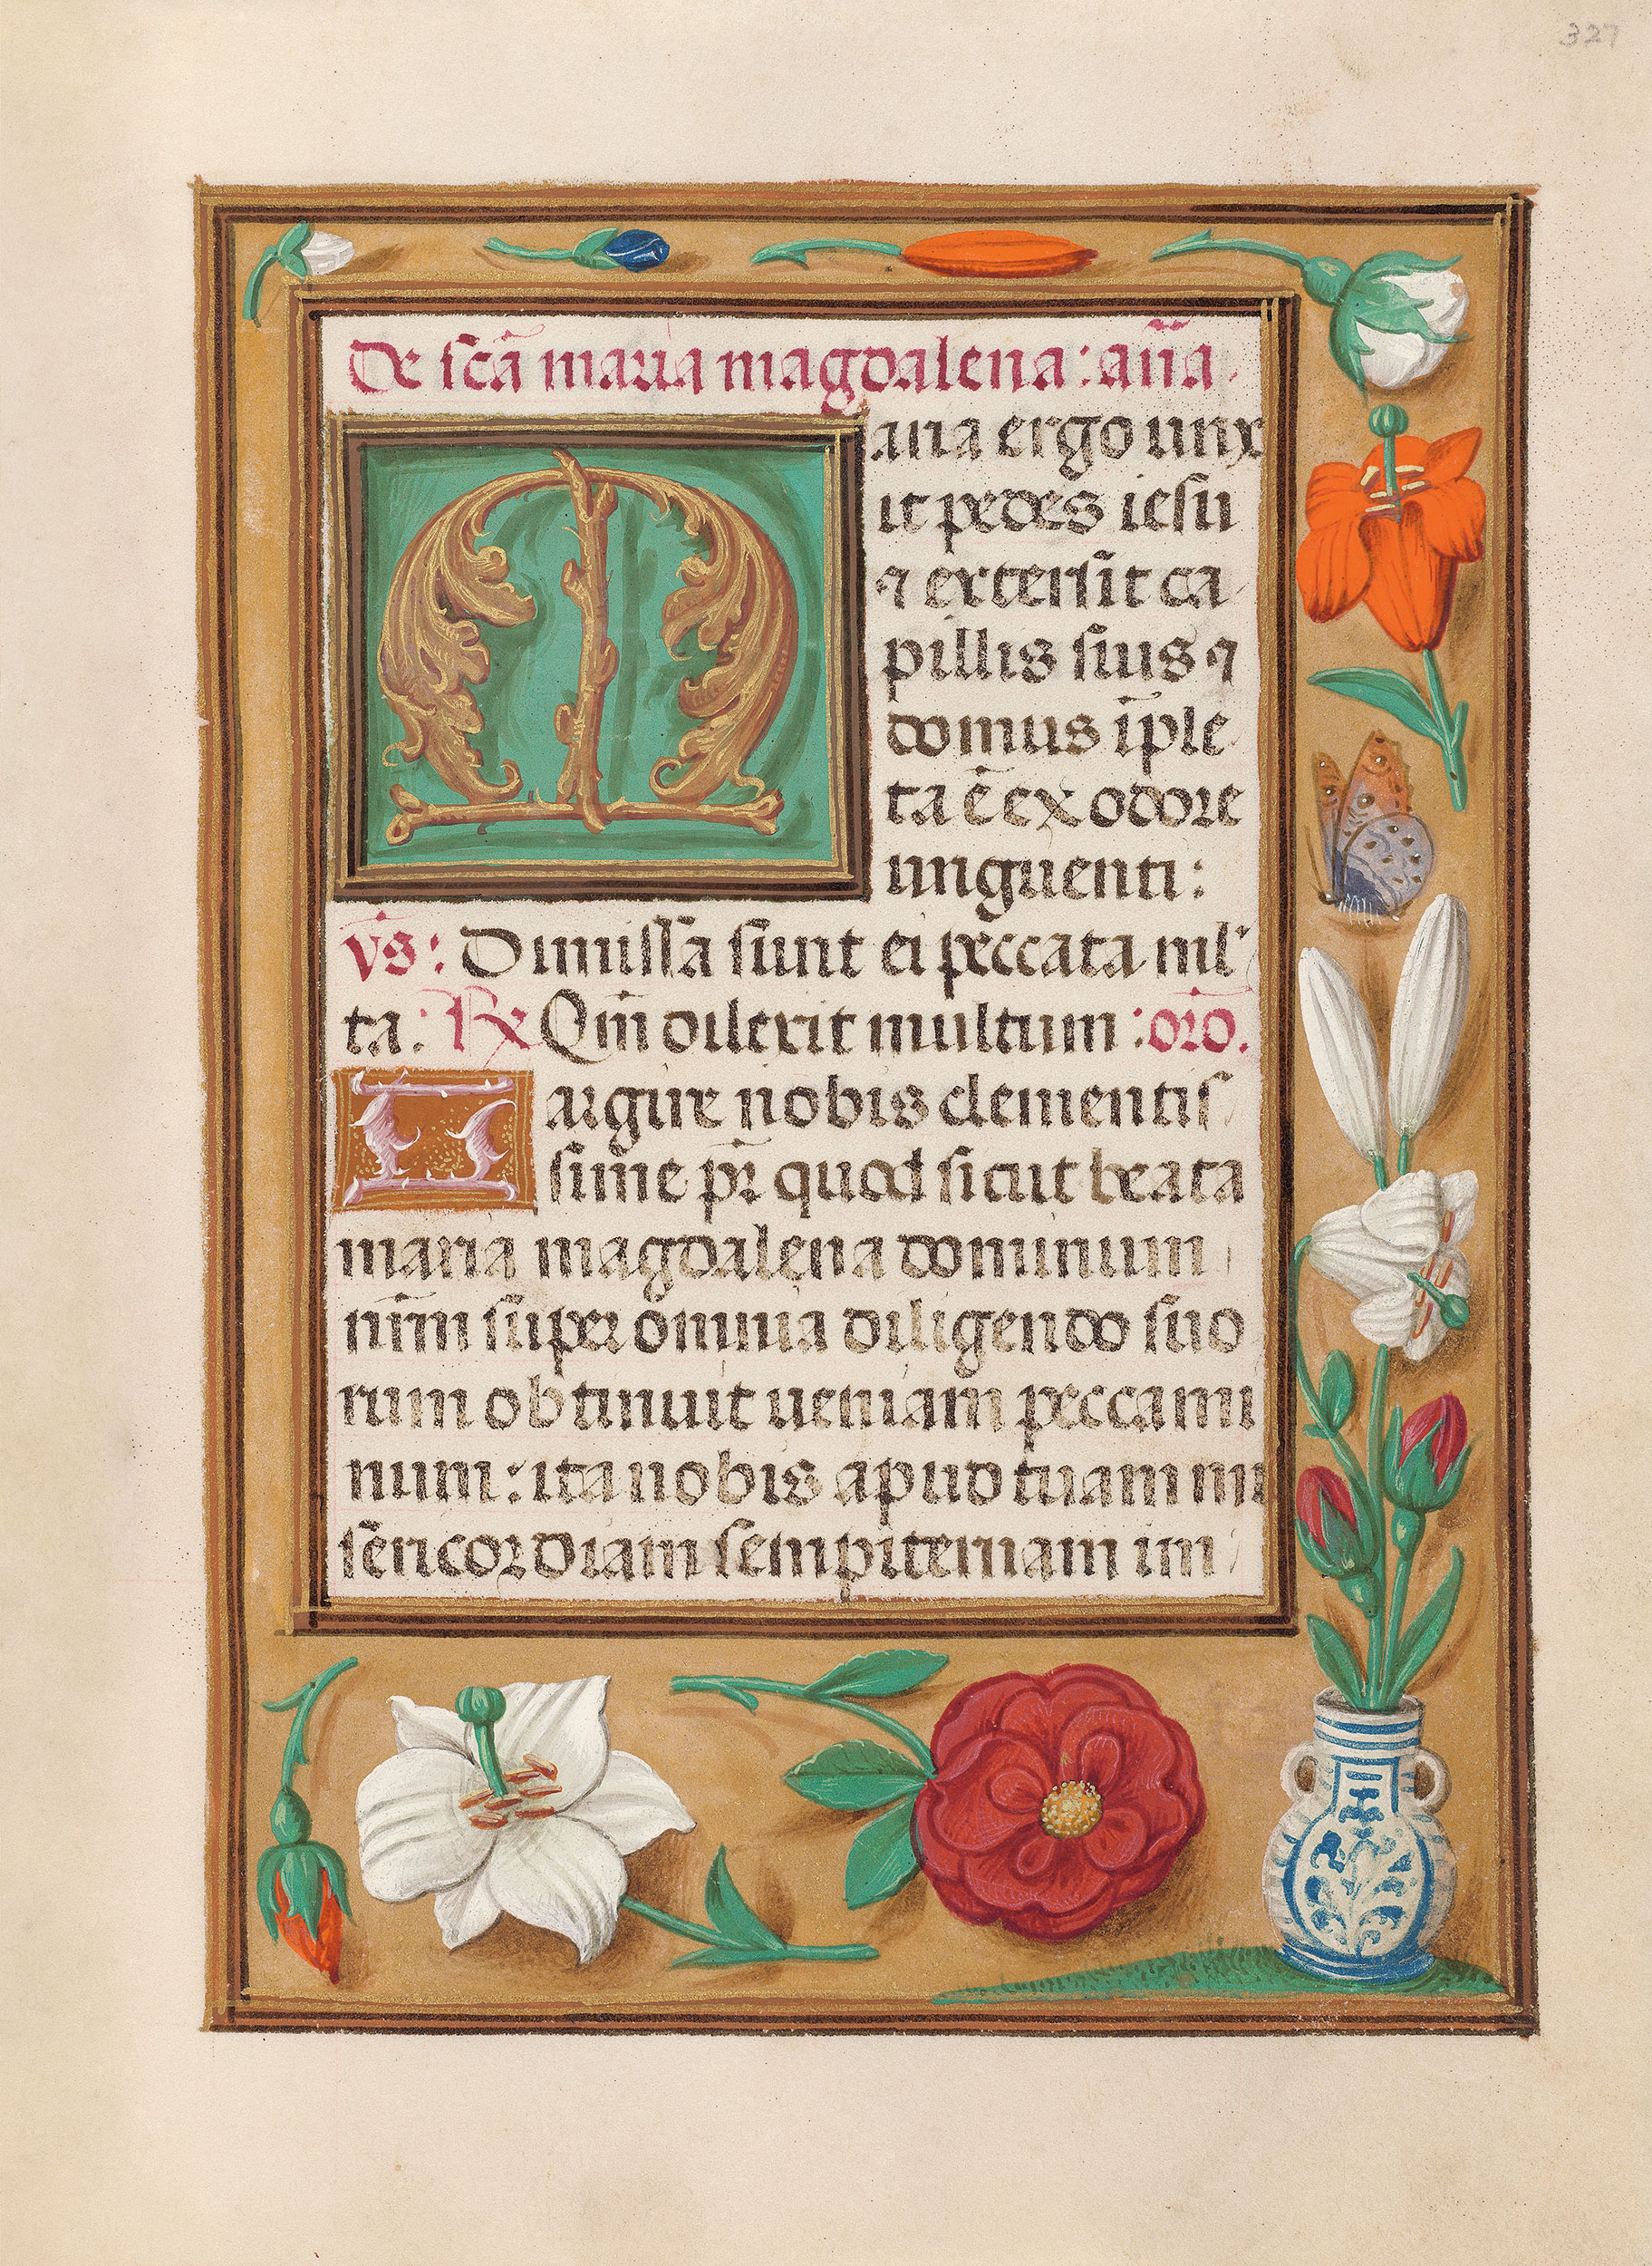 327
De scā maria magdalena : an̄a
Maria ergo unx
it pedes iesu
⁊ extersit ca
pillis suis ⁊
domus īple
ta ē ex odore
unguenti :
vs̄ : Dimissa sunt ei peccata ml̄
ta : ℟ Qm̄ dilexit multum : oro.
Largire nobis clementis
sime pr̄ quod sicut beata
maria magdalena dominum
nr̄m super omnia diligendo suo
rum obtinuit ueniam peccami
num : ita nobis apud tuam mi
sericordiam sempiternam im